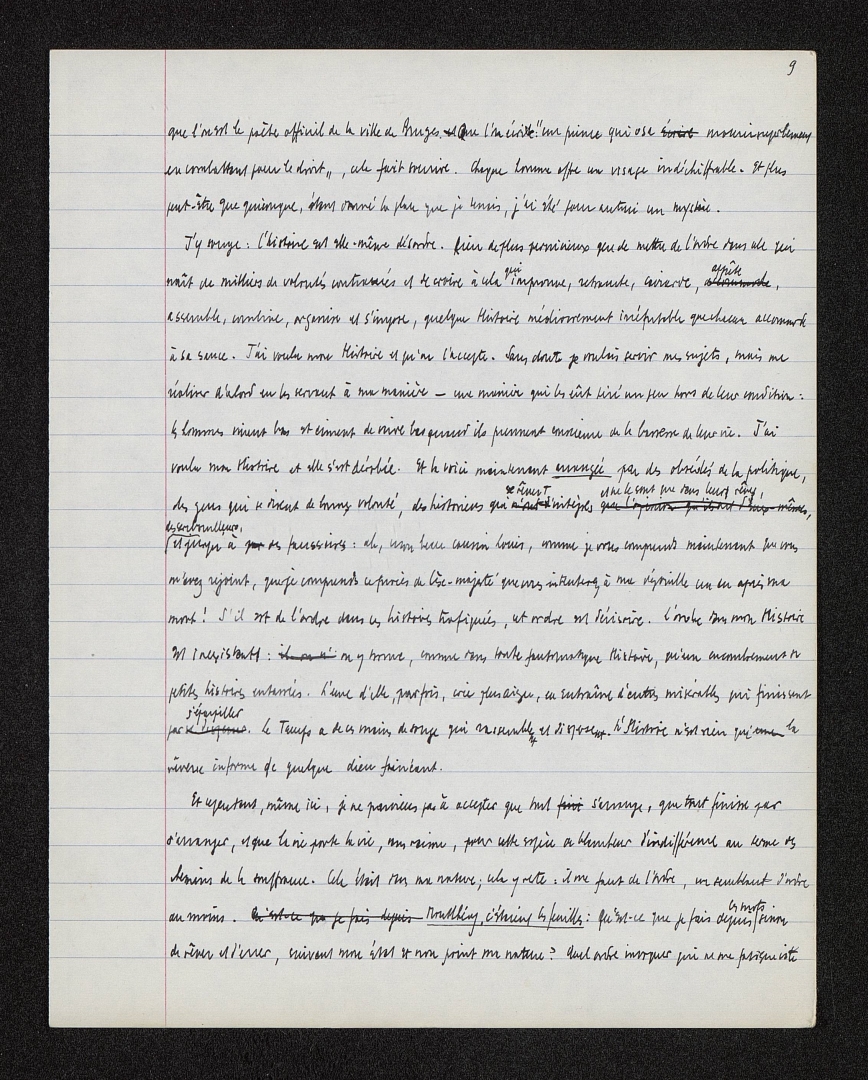 9
que l'on est le poète officiel de la ville de Bruges. et Que l'on écrive: "un prince qui ose écrire mourir superbement
en combattant pour le droit", cela fait sourire. Chaque homme offre un visage indéchiffrable. Et plus
peut-être que quiconque, étant donné la place que je tenais, j'ai été pour autrui un mystère.
J'y songe : l'histoire est elle-même désordre. Rien de plus pernicieux que de mettre de l'ordre dans cela qui
qui affûte
naît de milliers de volontés contrariées et de croire à cela improvise, retranche,
assemble, combine, organise et s'impose, quelque Histoire médiocrement irréfutable que chacun accommode
à sa sauce. J'ai voulu mon Histoire et qu'on l'accepte. Sans doute je voulais servir mes sujets, mais me
réaliser d'abord en les servant à ma manière — une manière qui les eût tiré un peu hors de leur condition :
les hommes vivent bas et aiment de vivre bas quand ils prennent conscience de la bassesse de leur vie. J'ai
voulu mon Histoire et elle s'est dérobée. Et la voici maintenant arrangée par des obsédés de la politique,
se rêvent et ne le sont que dans leurs rêves,
des gens qui se disent de bonne volonté, des historiens qui intègres que l'opinion qu'ils ont d'eux-mêmes,
des embrouilleurs,
et jusqu'à des faussaires : ah, mon beau cousin Louis, comme je vous comprends maintenant que vous
m'avez rejoint, que je comprends ce procès de lèse-majesté que vous intenterez à ma dépouille un an après ma
mort ! S'il est de l'ordre dans ces histoires trafiquées, cet ordre est dérisoire. L'ordre dans mon Histoire
est inexistant : il on n' on y trouve, comme dans toute fantomatique Histoire, qu'un encombrement de
petites histoires entassées. L'une d'elle, parfois, crie plus aiguë, en entraîne d'autres misérables qui finissent
s'éparpiller
par. Le Temps a de ces mains de songe qui rassemblent et dispersent. L'Histoire n'est rien qu' la
rêverie informe de quelque dieu fainéant.
Et cependant, même ici, je ne parviens pas à accepter que tout finit s'arrange, que tout finisse par
s'arranger, et que la vie porte la vie, sans raison, pour cette espèce de blancheur d'indifférence au terme des
chemins de la souffrance. Cela était dans ma nature; cela y reste : il me faut de l'ordre, un semblant d'ordre
ces mots
au moins. Qu'est-ce que je fais depuis Montlhéry, c'étaient les feuilles : Qu'est-ce que je fais depuis sinon
de rêver et d'errer, suivant mon état et non point ma nature? Quel ordre invoquer qui ne me fasse